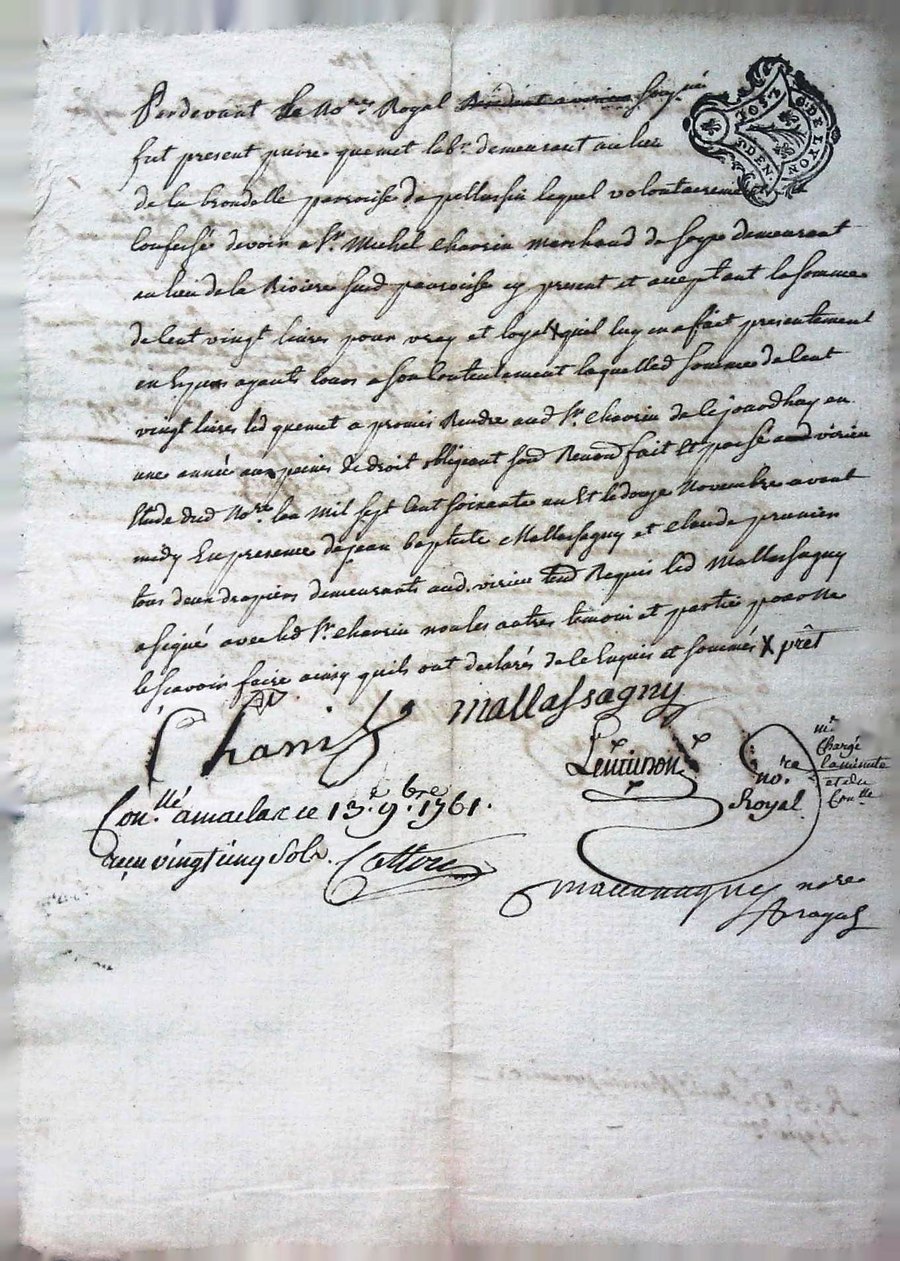 Perdevant le No.re Royal Résidant a virieu sous.né
fut present pierre quemet lab.r demeurant au lieu
de la brondelle parroise de pellussin lequel volontairement a
Confessé devoir a S.r Michel Chavrin marchand de soye demeurant
au lieu de la Riviere susd parroise cy present et acceptant la somme
de Cent vingt livres pour vray et loyal X quil luy en a fait presentement
en Especes ayants Cours a son Contentement laquelled somme de Cent
vingt livres led quemet a promis Rendre aud S.r Chavrin de ce jourdhuy en
une année aux peines de droit obligeant soud Renond fait Et passé aud virieu
Etude dud No.re lan Mil sept Cent soixante un Et le douze Novembre avant
midy En presence de jean baptiste Mallassagny et Claude prunier
tous deux drapiers demeurants aud. virieu Requis led Mallassagny
a signé avec led S.r Chavrin non les autres temoin et partie pour ne
le scavoir faire ainsy quils ont declarés de ce Enquis et sommés X prêt
mallassagny
no.re
Royal
m.re
Chargé
la minute
et du
Con.lle
Con.llé a maclas ce 13.e 9.bre 1761.
reçu vingt cinq sols.
no.re
Royal
G. DE LYON